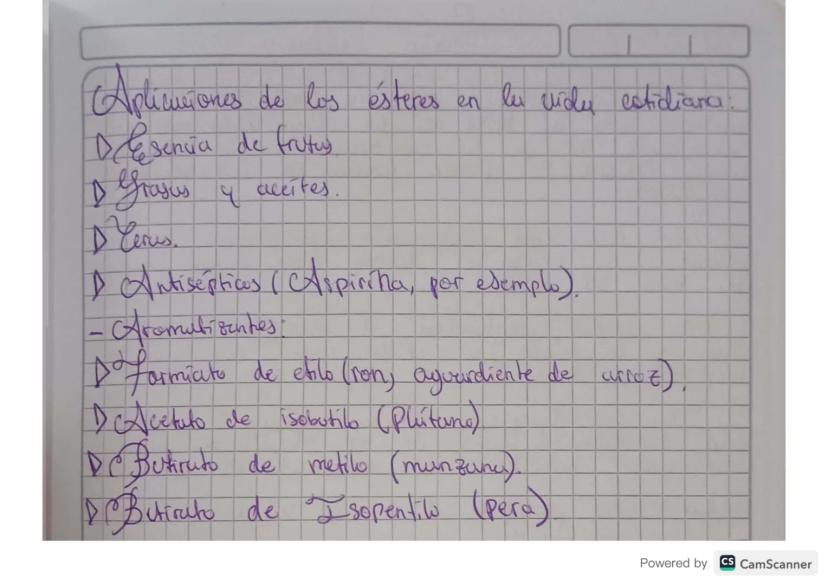 Aplicaciones de los ésteres en la vida cotidiana:
Esencia de frutas
Grasas y aceites.
Ceras.
Antisépticos (Aspirina, por ejemplo).
- Aromatizantes:
Formiato de etilo (ron, aguardiente de arroz).
Acetato de isobutilo (Plátano)
Butirato de metilo (manzana).
Butirato de Isopentilo (pera)
Powered by CS CamScanner